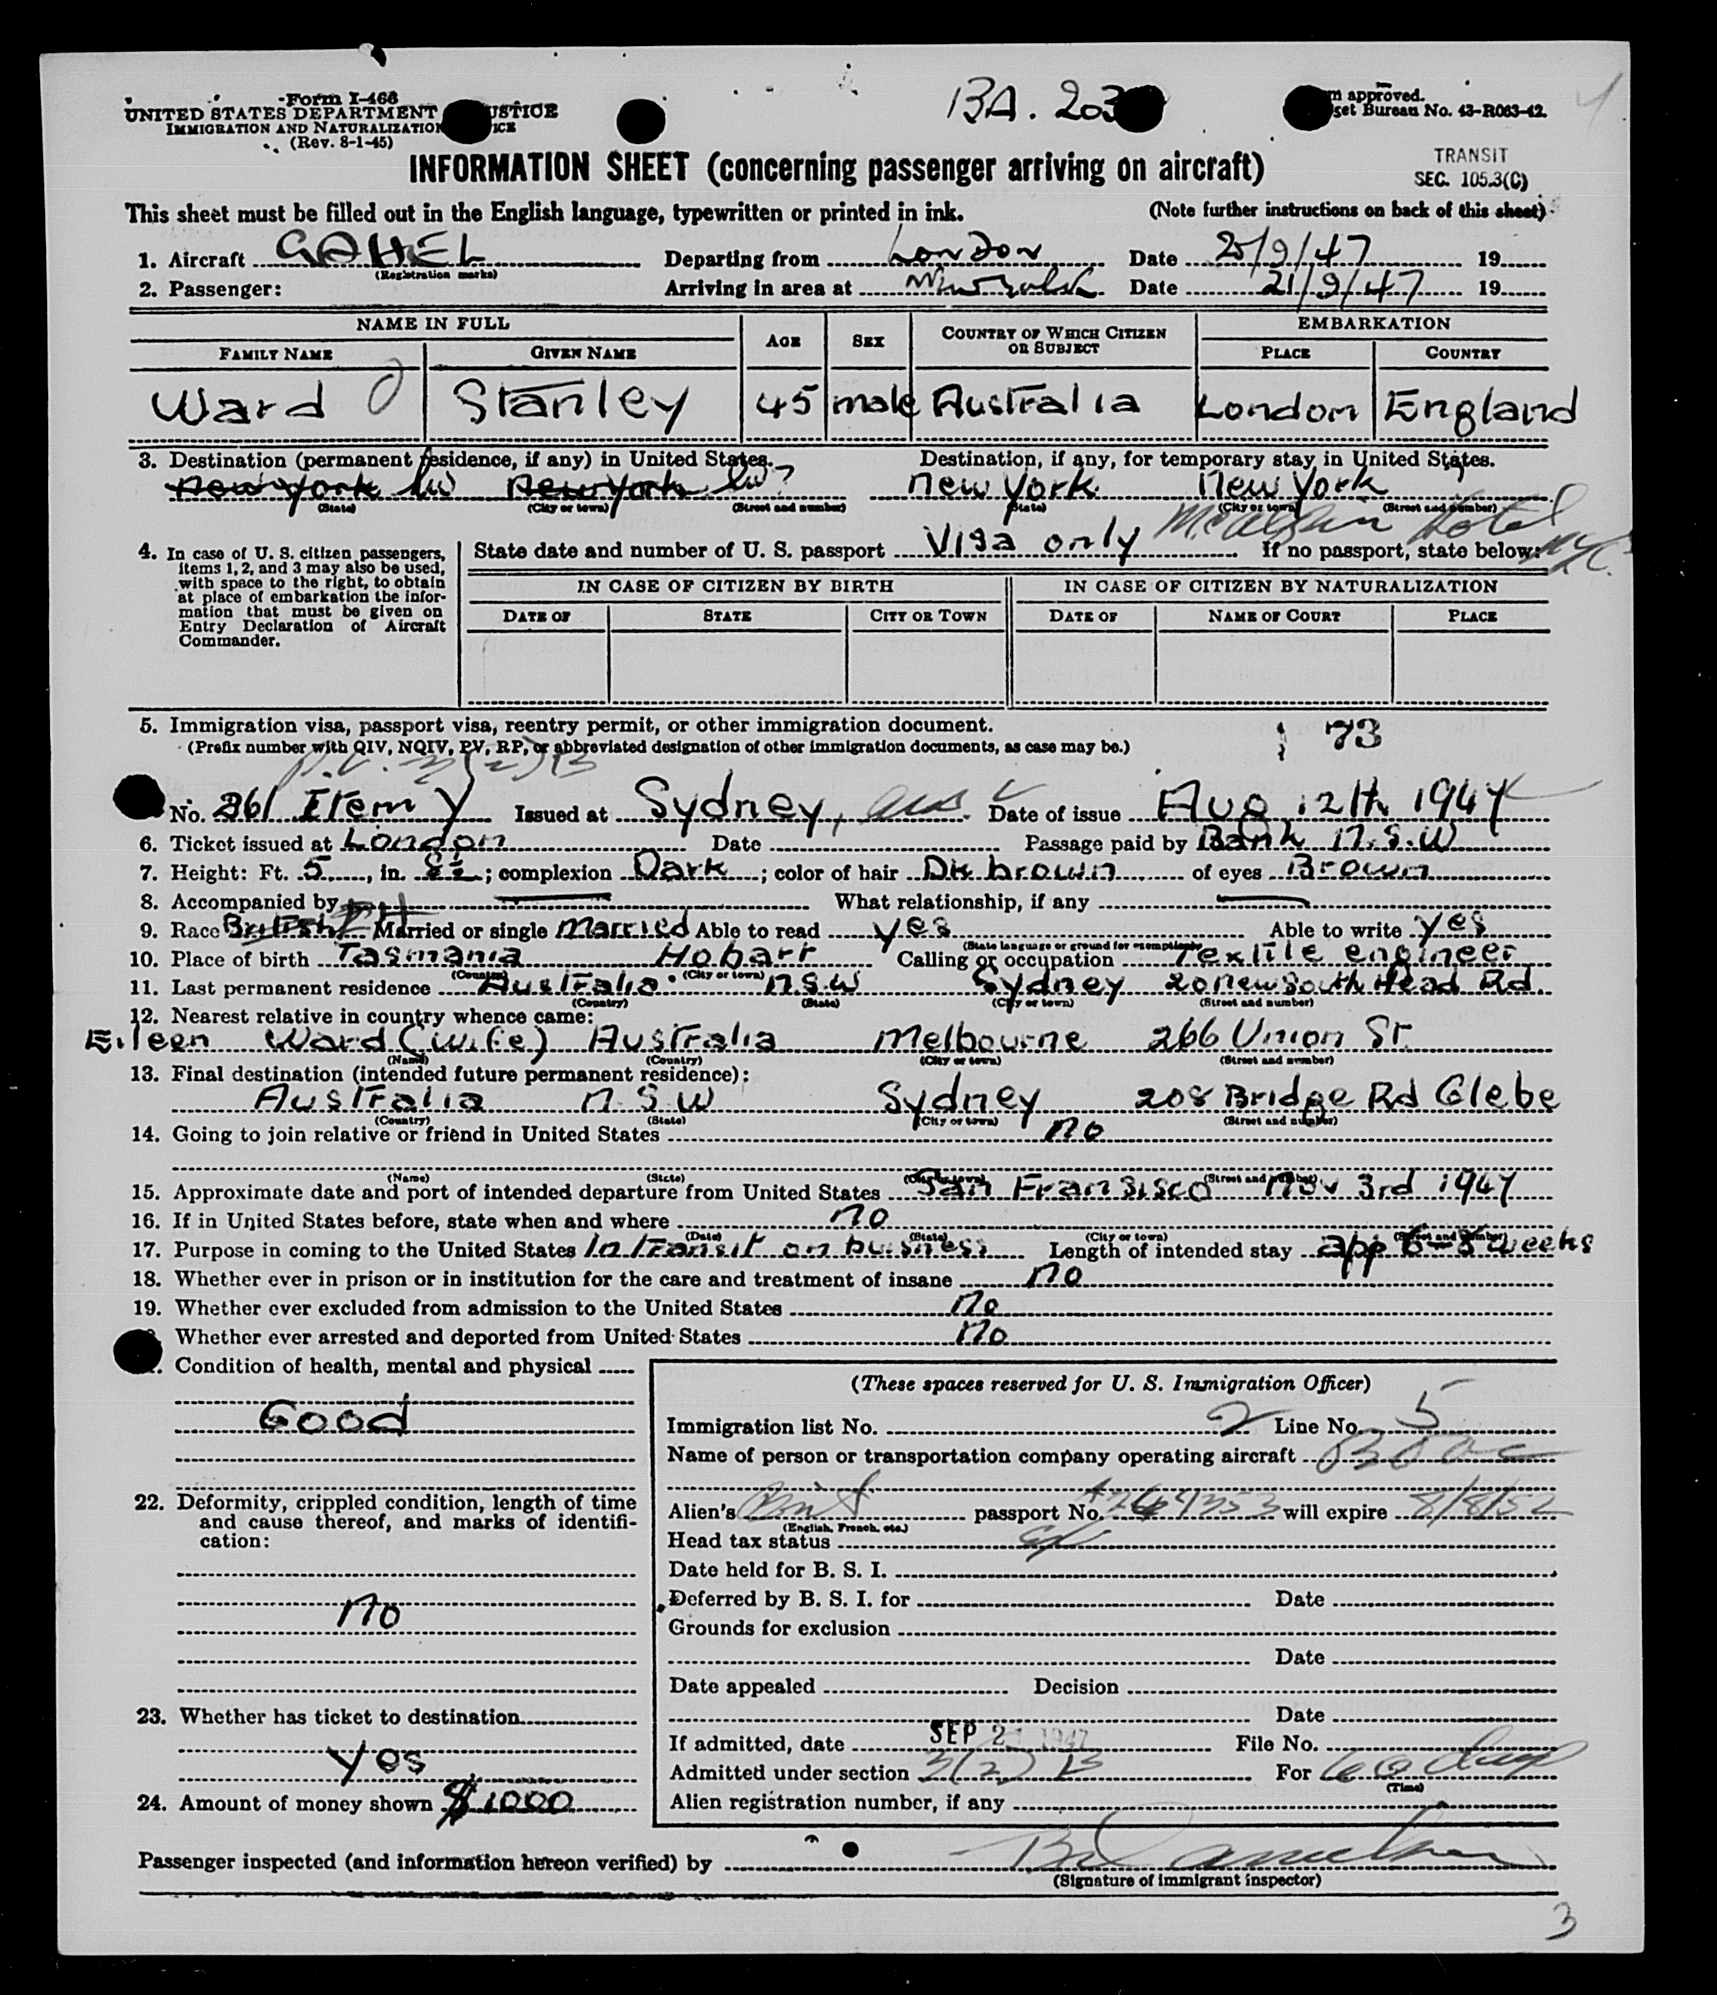 Form I-466
UNITED STATES DEPARTMENT JUSTICE
IMMIGRATION AND NATURALIZATION
(Rev. 8-1-45)
BA. 203
approved.
Bureau No. 43-R063-42.
INFORMATION SHEET (concerning passenger arriving on aircraft)
TRANSIT
SEC. 105.3(C)
This sheet must be filled out in the English language, typewritten or printed in ink. (Note further instructions on back of this sheet)
1. Aircraft GAHEL Departing from London Date 20/9/47 19
(Registration marks)
2. Passenger: Arriving in area at Date 21/9/47 19
NAME IN FULL AGE SEX COUNTRY OF WHICH CITIZEN OR SUBJECT EMBARKATION
FAMILY NAME GIVEN NAME PLACE COUNTRY
Ward Stanley 45 male Australia London England
3. Destination (permanent residence, if any) in United States. Destination, if any, for temporary stay in United States.
New York New York New York New York
(State) (City or town) (Street and number) (State) (City or town) (Street and number)
McAlpin Hotel N.Y.C.
4. In case of U. S. citizen passengers, items 1, 2, and 3 may also be used, with space to the right, to obtain at place of embarkation the information that must be given on Entry Declaration of Aircraft Commander.
State date and number of U. S. passport Visa only If no passport, state below:
IN CASE OF CITIZEN BY BIRTH IN CASE OF CITIZEN BY NATURALIZATION
DATE OF STATE CITY OR TOWN DATE OF NAME OF COURT PLACE
5. Immigration visa, passport visa, reentry permit, or other immigration document. 73
(Prefix number with QIV, NQIV, PV, RP, or abbreviated designation of other immigration documents, as case may be.)
P.V. 3(2)B
No. 261 Item Y Issued at Sydney, aus Date of issue Aug 12th 1947
6. Ticket issued at London Date Passage paid by Bank N.S.W
7. Height: Ft. 5, in. 8½; complexion Dark; color of hair Dk brown of eyes Brown
8. Accompanied by What relationship, if any
9. Race British Married or single Married Able to read yes Able to write yes
(State language or ground for exemption)
10. Place of birth Tasmania Hobart Calling or occupation Textile engineer
(Country) (City or town)
11. Last permanent residence Australia N.S.W Sydney 20 New South Head Rd.
(Country) (State) (City or town) (Street and number)
12. Nearest relative in country whence came:
Eileen Ward (wife) Australia Melbourne 266 Union St.
(Name) (Country) (City or town) (Street and number)
13. Final destination (intended future permanent residence):
Australia N.S.W Sydney 208 Bridge Rd Glebe
(Country) (State) (City or town) (Street and number)
14. Going to join relative or friend in United States no
(Name) (State) (City or town) (Street and number)
15. Approximate date and port of intended departure from United States San Fransisco Nov 3rd 1947
16. If in United States before, state when and where no
(Date) (State) (City or town) (Street and number)
17. Purpose in coming to the United States In transit on business Length of intended stay app 6-8 weeks
18. Whether ever in prison or in institution for the care and treatment of insane no
19. Whether ever excluded from admission to the United States No
Whether ever arrested and deported from United States No
Condition of health, mental and physical
Good
22. Deformity, crippled condition, length of time and cause thereof, and marks of identification:
No
23. Whether has ticket to destination
yes
24. Amount of money shown $1000
(These spaces reserved for U. S. Immigration Officer)
Immigration list No. 2 Line No. 5
Name of person or transportation company operating aircraft BOAC
Alien's Brit passport No. will expire 8/8/52
(English, French, etc.)
Head tax status
Date held for B. S. I.
Deferred by B. S. I. for Date
Grounds for exclusion
Date
Date appealed Decision
Date
If admitted, date SEP 2 1947 File No.
Admitted under section 3(2) B For 60 days
(Time)
Alien registration number, if any
Passenger inspected (and information hereon verified) by
(Signature of immigrant inspector)
3